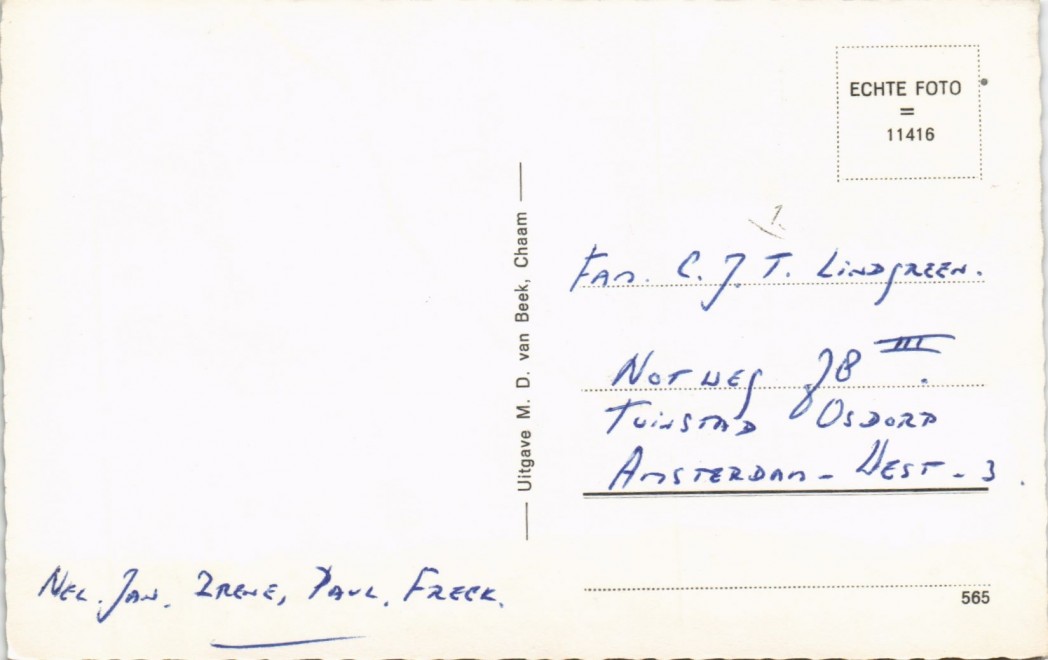 ECHTE FOTO
=
11416
1.
Fam. C. J. T. Lindgreen.
Notweg 78 III.
Tuinstad Osdorp
Amsterdam - West - 3.
Uitgave M. D. van Beek, Chaam
Nel. Jan. Irene, Paul, Freek.
565